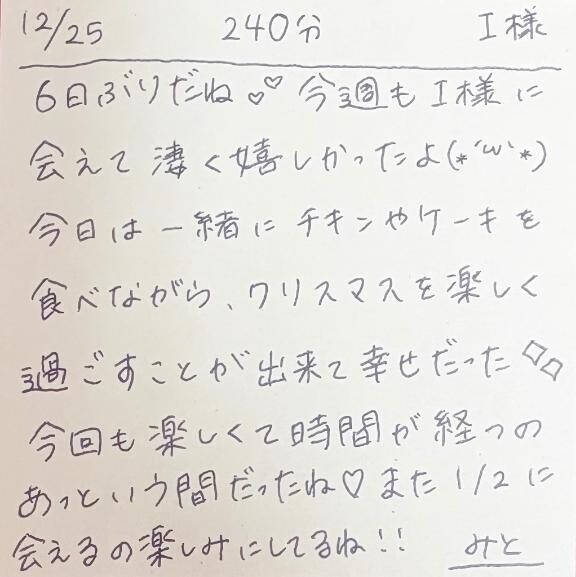 12/25 240分 I様
6日ぶりだね♡♡ 今週も I様に
会えて 凄く嬉しかったよ(*´ω`*)
今日は 一緒に チキンやケーキを
食べながら、クリスマスを楽しく
過ごすことが出来て幸せだった
今回も楽しくて時間が経つの
あっという間だったね♡また 1/2に
会えるの楽しみにしてるね!! みと